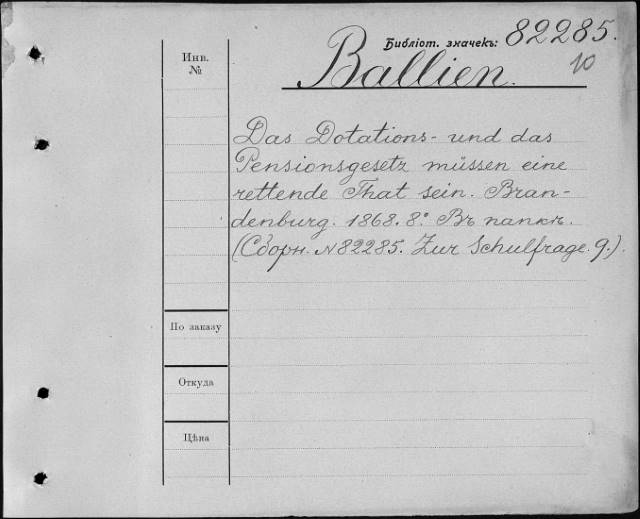 Библіот. значекъ: 82285.
10
Инв. №
Ballien.
Das Dotations- und das
Pensionsgesetz müssen eine
rettende That sein. Bran-
denburg. 1868. 8°. Въ папкѣ.
(Сборн. №82285. Zur Schulfrage. 9.).
По заказу
Откуда
Цѣна